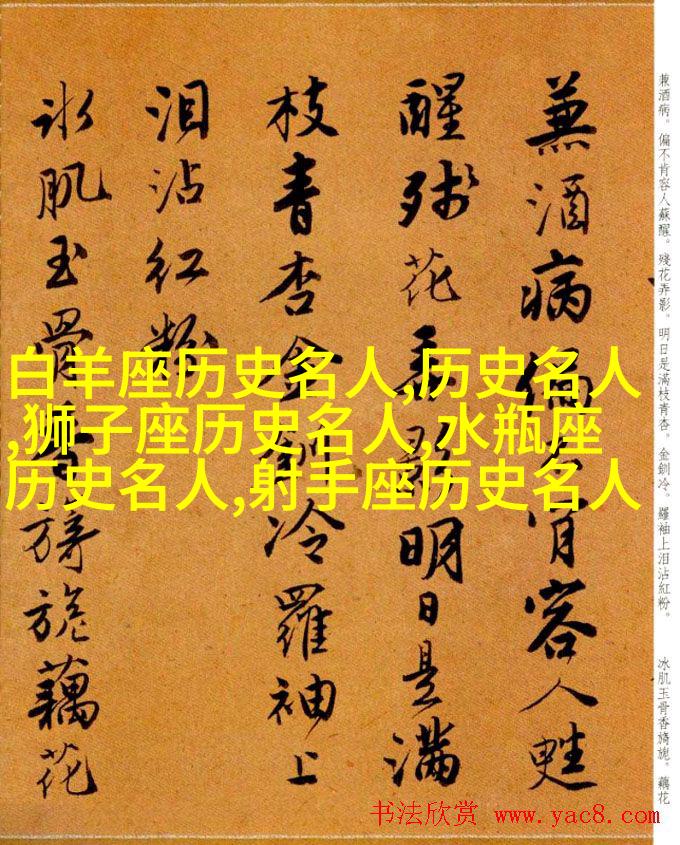 兼酒病。偏不肯容人蘇醒。殘花弄影。明日是滿枝青杏。金釧冷。羅袖上泪沾紅粉。
冰肌玉骨香旖旎。藕花
兼酒病偏不肯容人甦
醒殘花弄影明日是滿
枝青杏金釧冷羅袖上
泪沾紅粉
冰肌玉骨香旖旎藕花
白羊座历史名人,历史名人
,狮子座历史名人,水瓶座
历史名人,射手座历史名人
书法欣赏 www.yac8.com